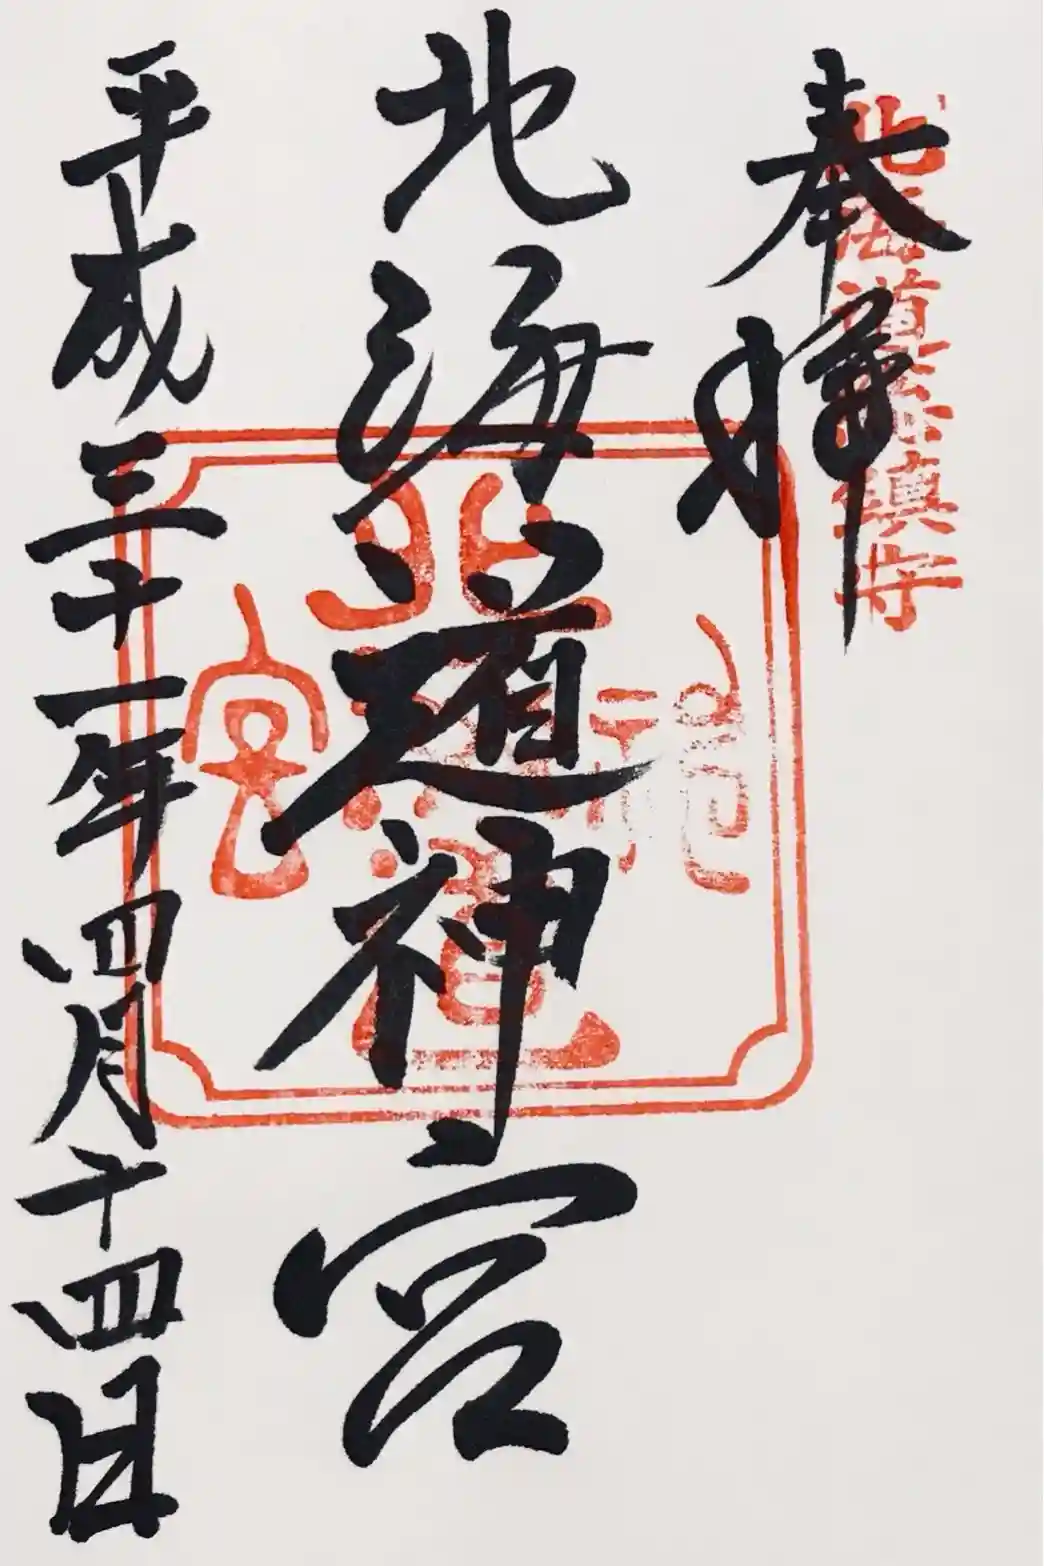 北海道総鎮守
奉拝
北海道神宮
北海道神宮
平成三十一年四月十四日